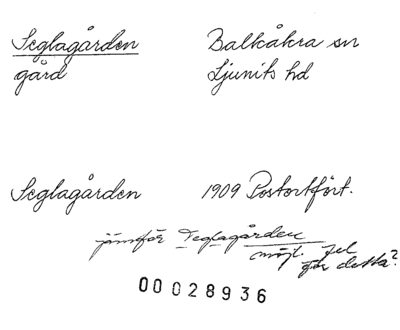 Seglagården Balkåkra sn
gård Ljunits hd
Seglagården 1909 Postortfört.
jämför Teglagården
möjl. fel
för detta?
00028936